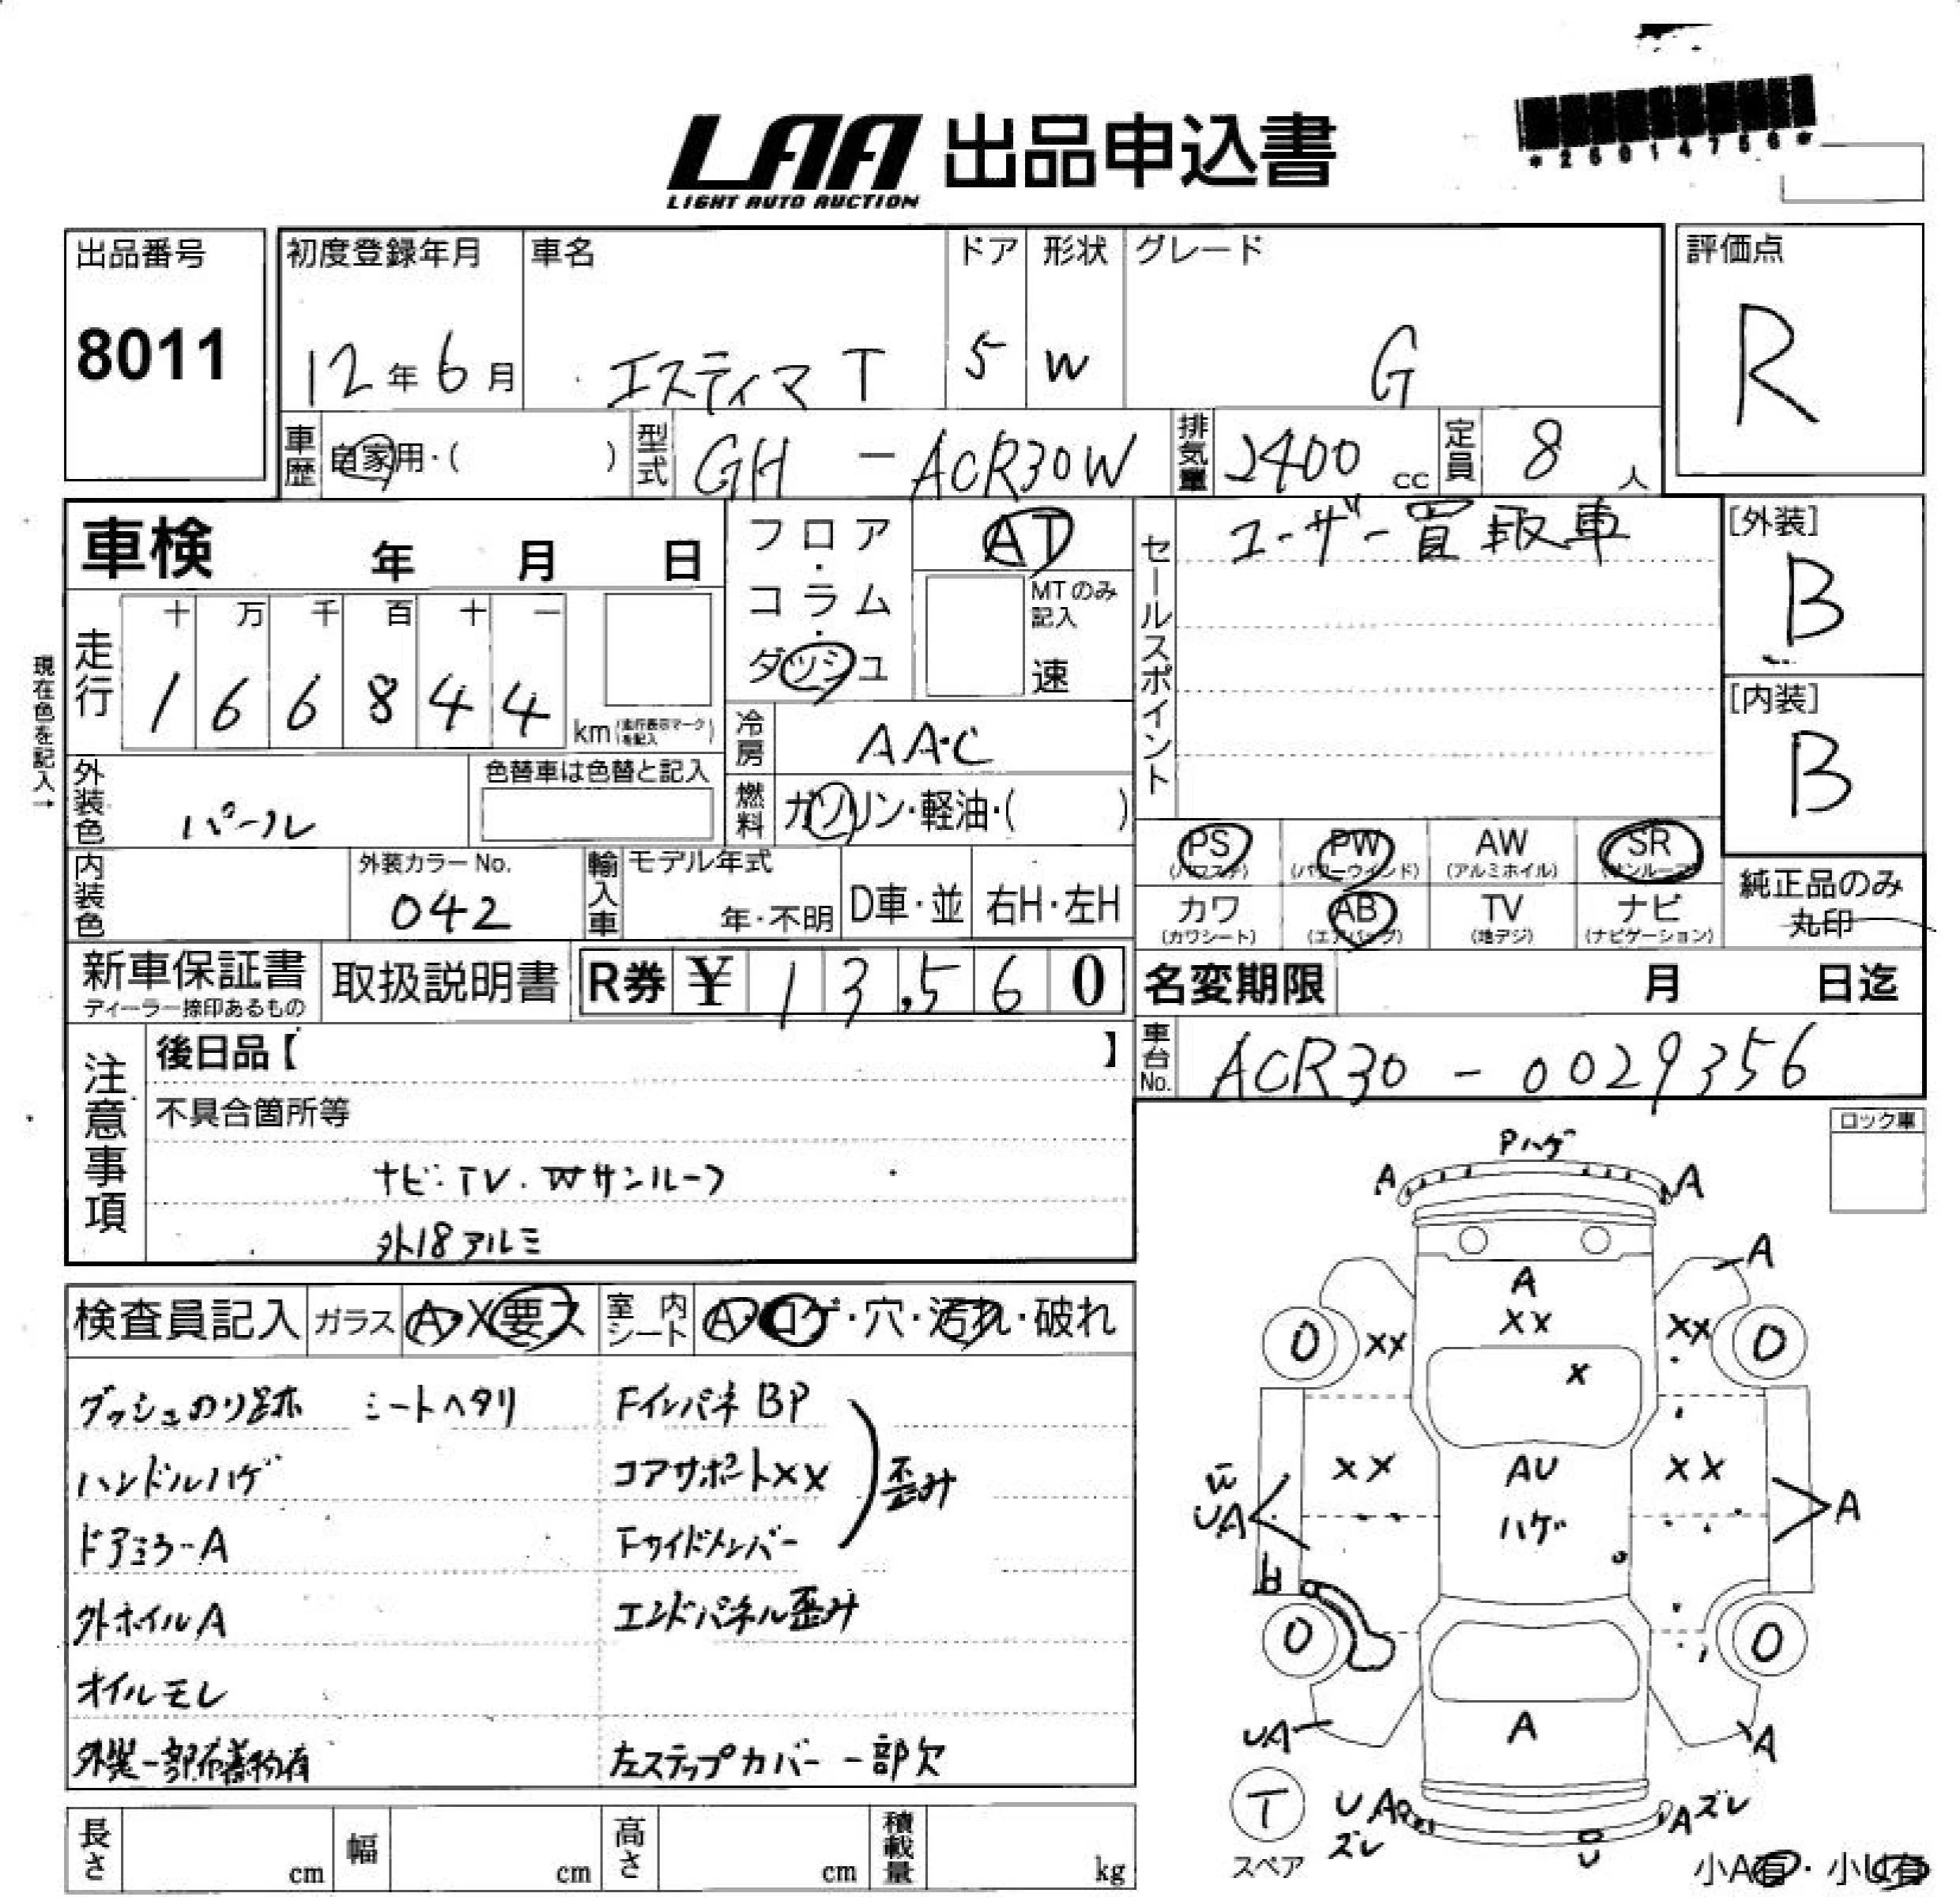 LAA 出品申込書
LIGHT AUTO AUCTION
*25014756*
出品番号
8011
初度登録年月
12年6月
車名
エスティマT
ドア
5
形状
W
グレード
G
評価点
R
車歴
自家用・( )
型式
GH-ACR30W
排気量
2400cc
定員
8人
車検 年 月 日
フロア・コラム・ダッシュ
AT
MTのみ記入
速
セールスポイント
ユーザー買取車
[外装]
B
[内装]
B
現在色を記入→
走行
十 万 千 百 十 一
1 6 6 8 4 4
km(走行表示マークを記入)
冷房
AAC
外装色
パール
色替車は色替と記入
燃料
ガソリン・軽油・( )
内装色
外装カラーNo.
042
輸入車
モデル年式
年・不明
D車・並
右H・左H
PS
(パワステ)
PW
(パワーウインド)
AW
(アルミホイル)
SR
(サンルーフ)
カワ
(カワシート)
AB
(エアバッグ)
TV
(地デジ)
ナビ
(ナビゲーション)
純正品のみ
丸印
新車保証書
ディーラー捺印あるもの
取扱説明書
R券 ¥13,560
名変期限 月 日迄
車台No.
ACR30-0029356
注意事項
後日品【 】
不具合箇所等
ナビ・TV・Wサンルーフ
外18アルミ
ロック車
検査員記入
ガラス
A・X要ス
室内シート
A・コゲ・穴・汚れ・破れ
ダッシュのり跡 シートヘタリ
FインパネBP
ハンドルハゲ
コアサポートXX
歪み
ドアミラーA
Fサイドメンバー
外ホイルA
エンドパネル歪み
オイルモレ
外装一部付着物有
左ステップカバー一部欠
長さ cm
幅 cm
高さ cm
積載量 kg
Pハゲ
A A
A
A
XX
0 XX XX 0
X
XX AU XX
UA ハゲ A
0 0
UA A A
T
スペア
UA ズレ
A ズレ
U
小A有・小U有